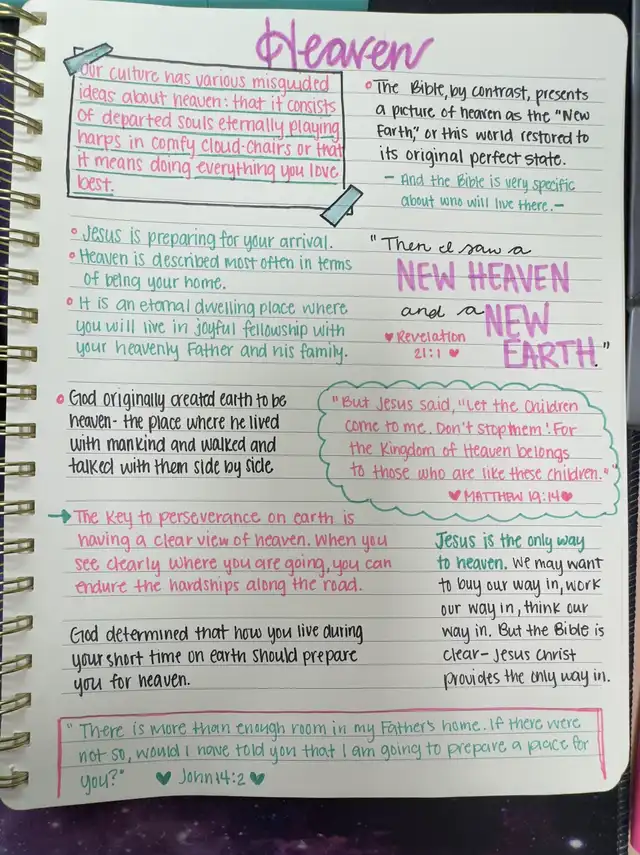 Heaven
Our culture has various misguided
ideas about heaven: that it consists
of departed souls eternally playing
harps in comfy cloud-chairs or that
it means doing everything you love
best.
The Bible, by contrast, presents
a picture of heaven as the "New
Earth," or this world restored to
its original perfect state.
- And the Bible is very specific
about who will live there. -
Jesus is preparing for your arrival.
Heaven is described most often in terms
of being your home.
It is an eternal dwelling place where
you will live in joyful fellowship with
your heavenly Father and his family.
"Then I saw a
NEW HEAVEN
and a NEW
EARTH."
♥ Revelation
21:1 ♥
God originally created earth to be
heaven- the place where he lived
with mankind and walked and
talked with them side by side
"But Jesus said, "Let the children
come to me. Don't stop them! For
the Kingdom of Heaven belongs
to those who are like these children.""
♥ MATTHEW 19:14 ♥
→ The key to perseverance on earth is
having a clear view of heaven. When you
see clearly where you are going, you can
endure the hardships along the road.
God determined that how you live during
your short time on earth should prepare
you for heaven.
Jesus is the only way
to heaven. We may want
to buy our way in, work
our way in, think our
way in. But the Bible is
clear- Jesus Christ
provides the only way in.
"There is more than enough room in my Father's home. If there were
not so, would I have told you that I am going to prepare a place for
you?" ♥ John 14:2 ♥